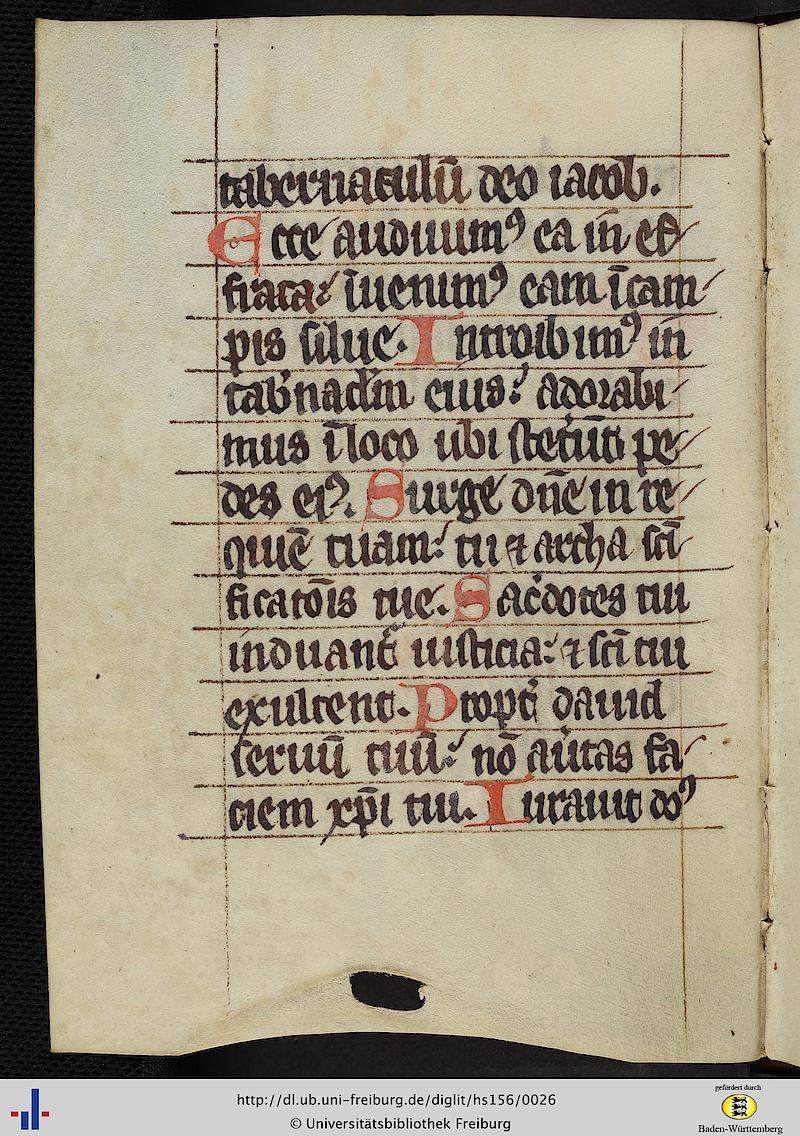 tabernaculū deo iacob.
Ecce audiuimꝰ ea in ef
frata: īuenimꝰ eam ī cam
pis silue. Introibimꝰ in
tab̓nacl̓m eius: adorabi
mus ī loco ubi stet̓ūt pe
des eiꝰ. Surge dn̄e in re
quiē tuam: tu ⁊ archa sc̄i
ficatōis tue. Sac̓dotes tui
induant᷑ iusticia: ⁊ sc̄i tui
exultent. Propt̓ dauid
seruū tuū: nō au̓tas fa
ciem xp̄i tui. Iurauit dn̄s
http://dl.ub.uni-freiburg.de/diglit/hs156/0026
© Universitätsbibliothek Freiburg
gefördert durch
Baden-Württemberg